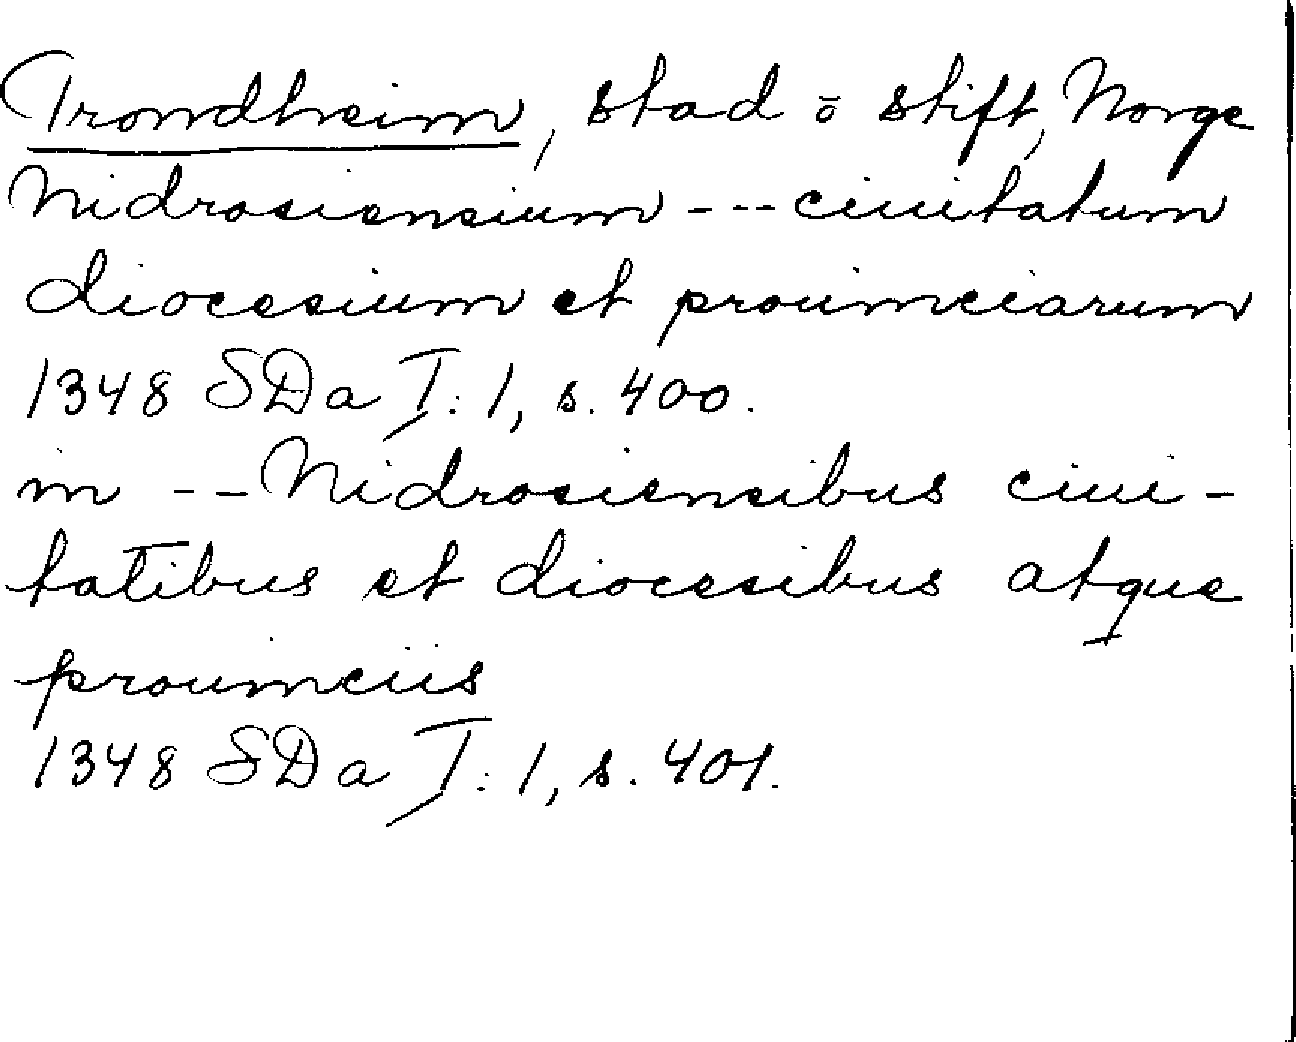 Trondheim, stad ō stift, Norge
Nidrosiensium --- ciuitatum
diocesium et prouinciarum
1348 SDa I: 1, s. 400.
in -- Nidrosiensibus ciui-
tatibus et diocesibus atque
prouinciis
1348 SDa I: 1, s. 401.